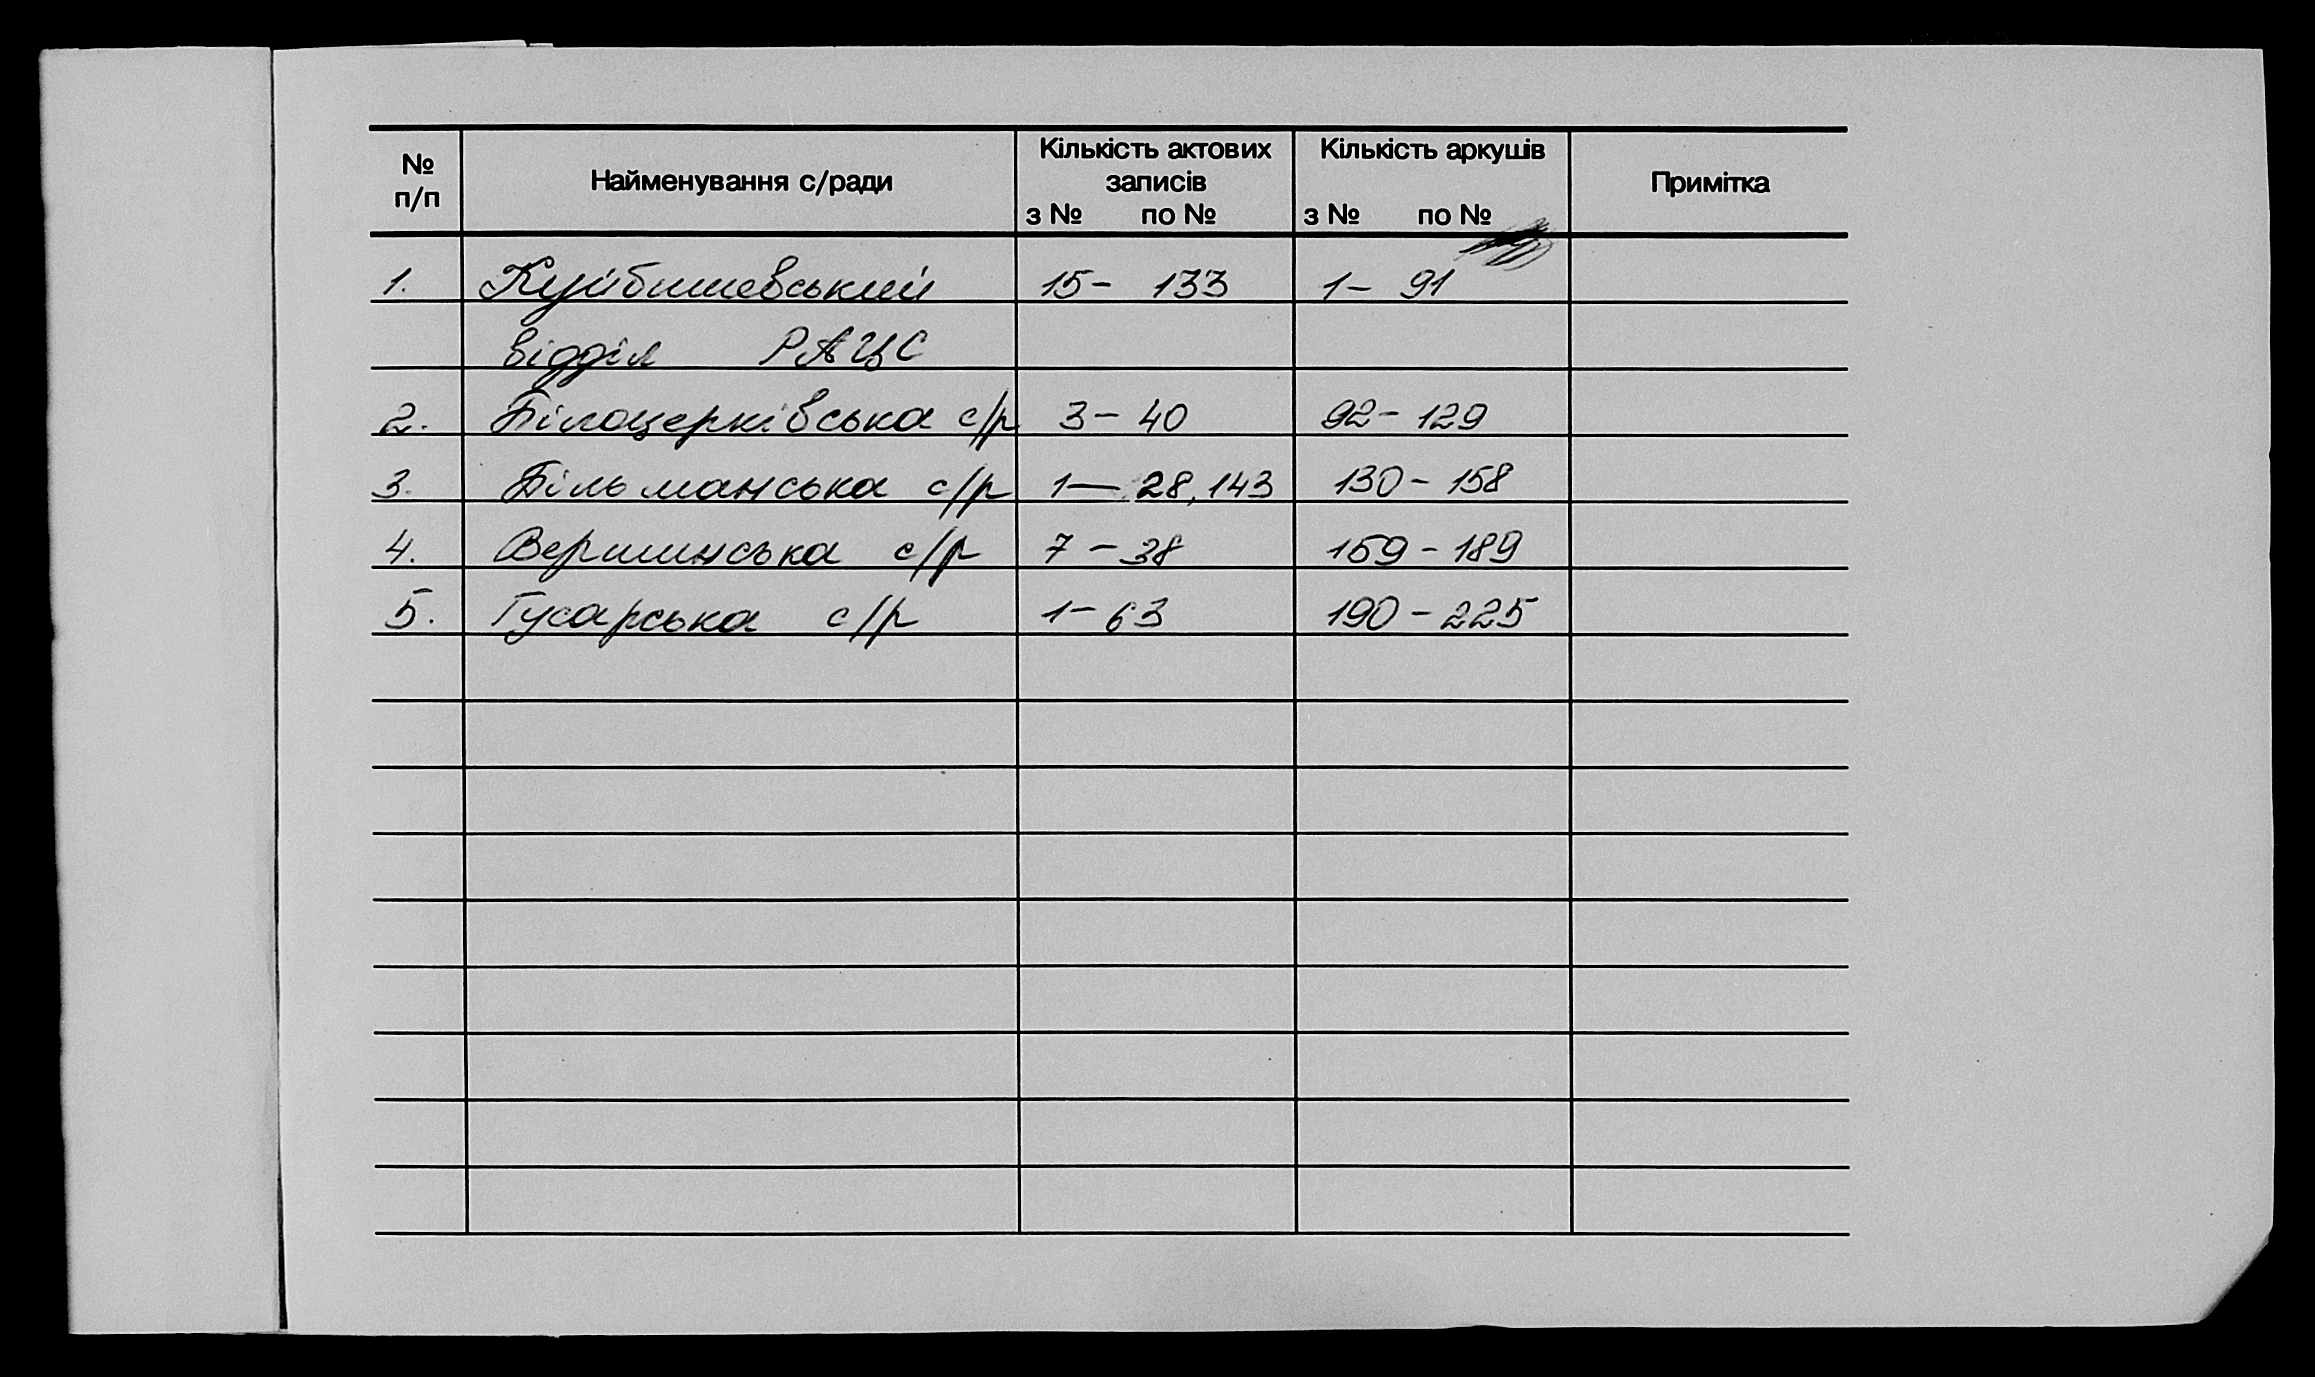 № п/п Найменування с/ради Кількість актових записів з № по № Кількість аркушів з № по № Примітка
1. Куйбишевський 15- 133 1- 91
відділ РАЦС
2. Білоцерківська с/р 3-40 92-129
3. Більманська с/р 1-28,143 130-158
4. Вершинська с/р 7-38 159-189
5. Гусарська с/р 1-63 190-225